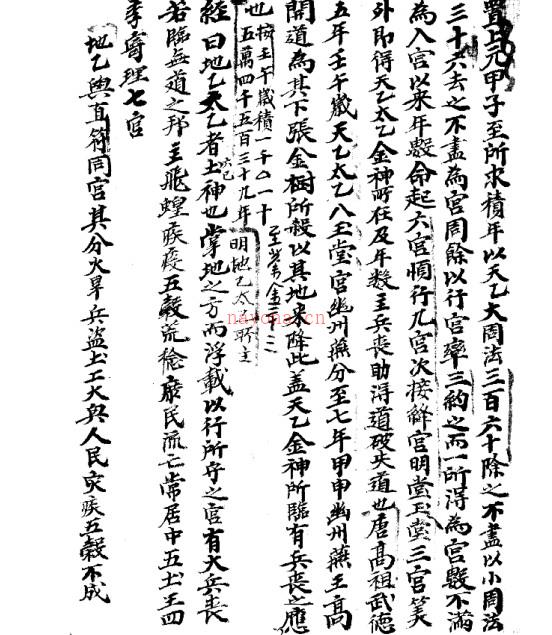 置上元甲子至所求積年以天乙大周法三百六十除之不盡以小周法
三十六去之不盡為宮周餘以行宮率三約之而一所得為宮數不滿
為入宮以來年數命起六宮順行九宮次接絳宮明堂玉堂三宮筭
外即得天乙太乙金神所在及年數主兵喪助得道破失道也唐高祖武德
五年壬午歲天乙太乙八玉堂宮幽州燕分至七年甲申幽州燕王高
開道為其下張金樹所殺以其地來降此蓋天乙金神所臨有兵喪之應
也按壬午歲積一千〇一十
五萬四千五百三十九年
明地乙太乙所主
經曰地乙太乙者土神也掌地之方而浮載以行所守之宮有大兵喪
若臨無道之邦主飛蝗疾疫五穀荒稔衆民流亡常居中五土王四
季寄理七宮
地乙與直符同宮其分火旱兵盜土工大興人民灾疾五穀不成
navona.cn